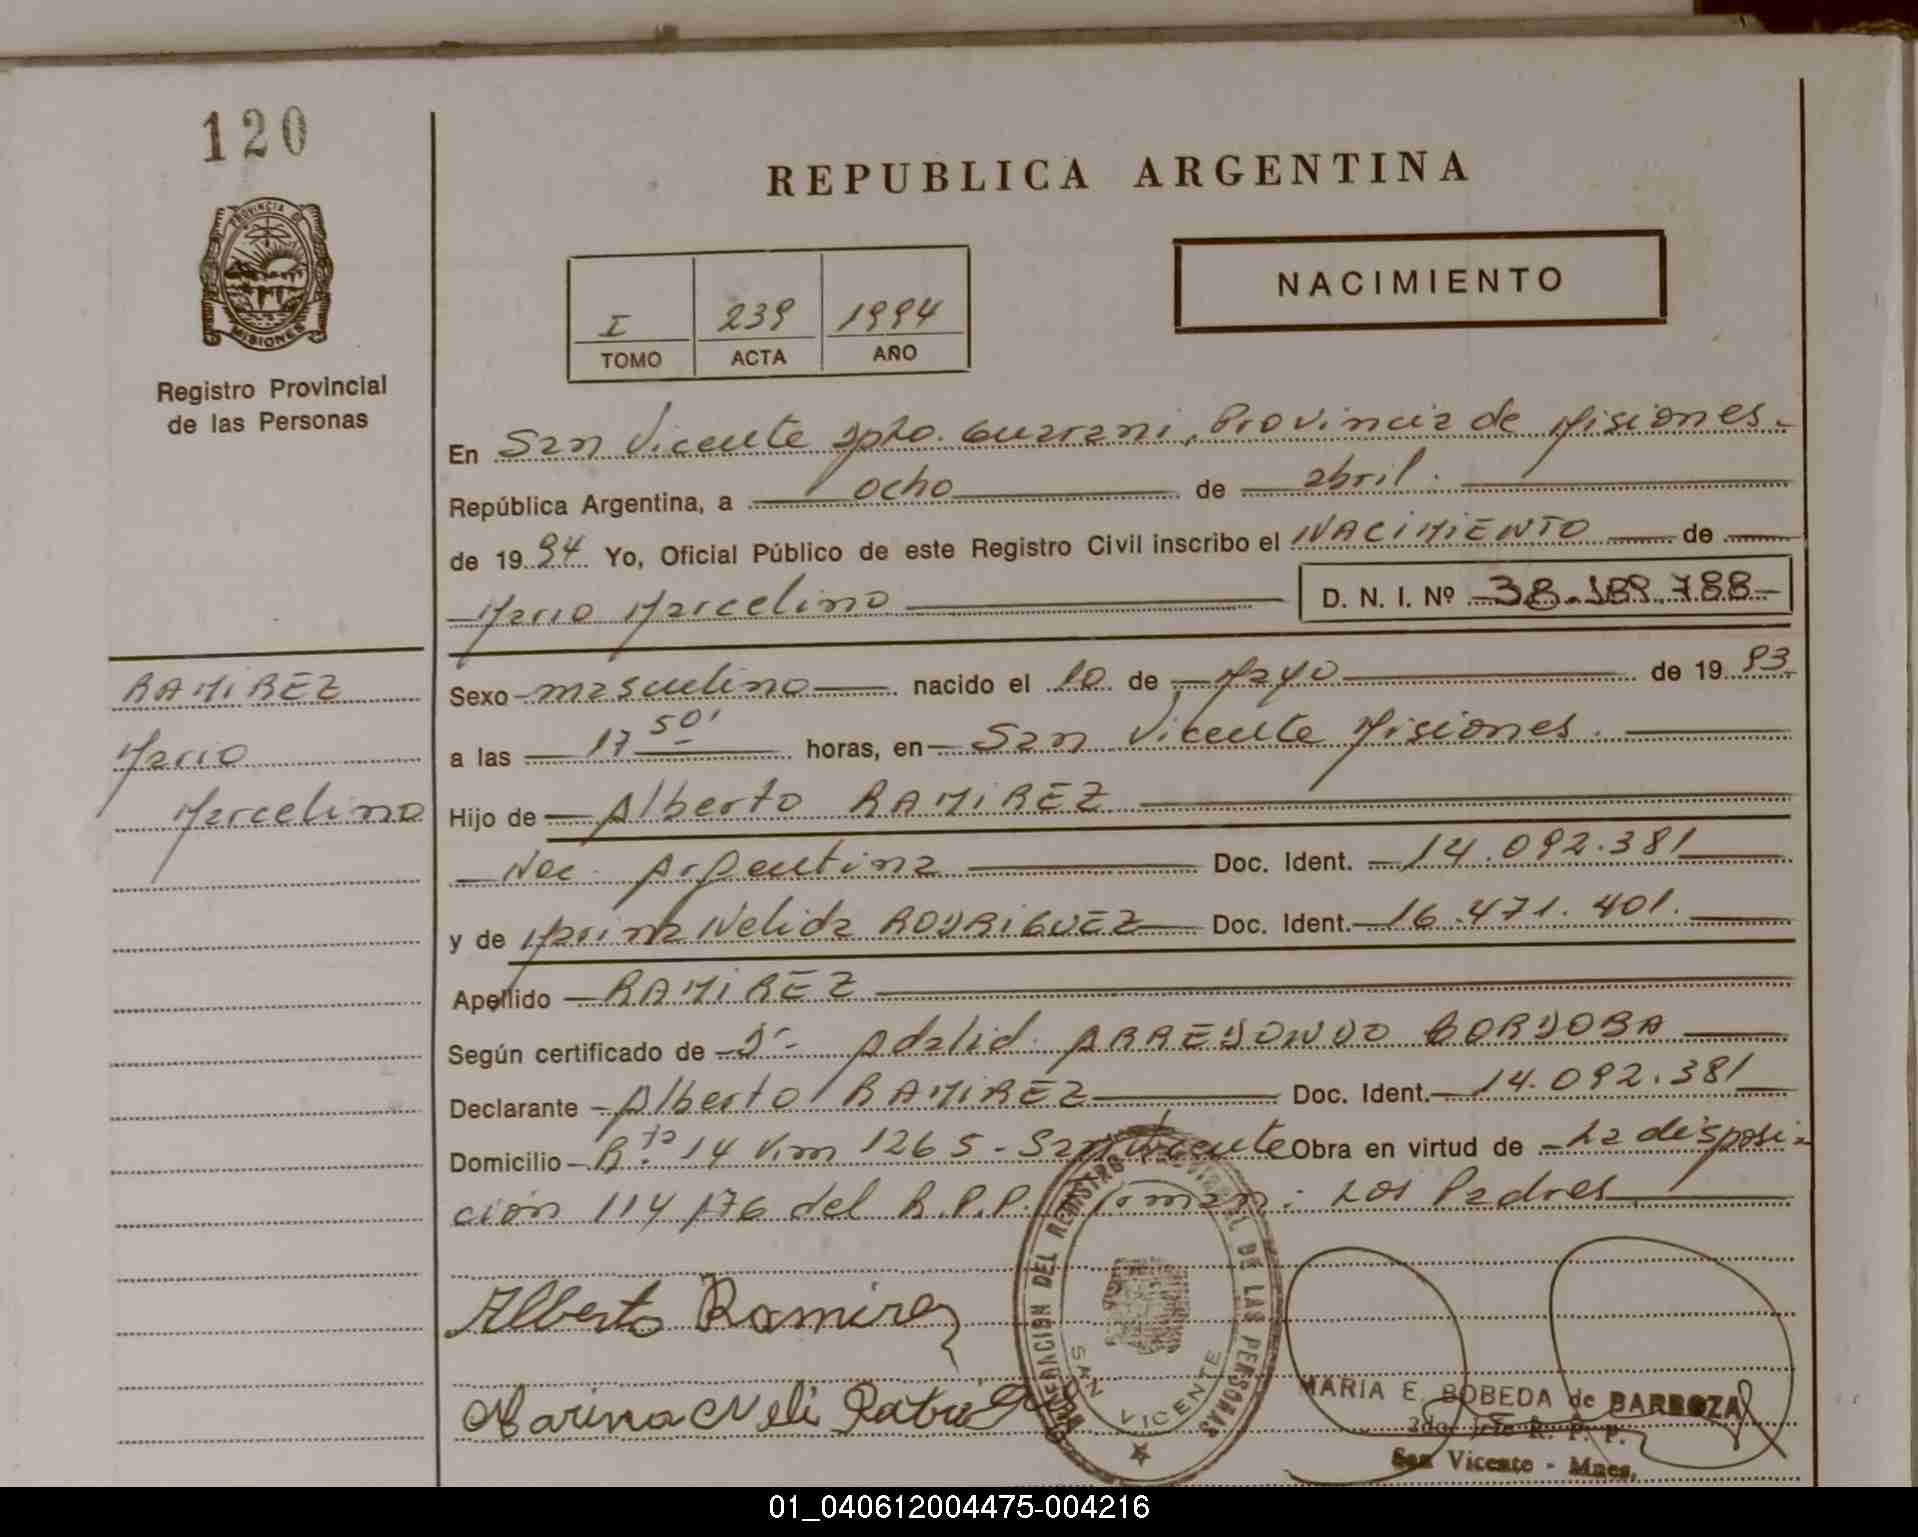 120
REPUBLICA ARGENTINA
PROVINCIA DE
MISIONES
Registro Provincial
de las Personas
I 239 1994
TOMO ACTA AÑO
NACIMIENTO
En San Vicente Dpto. Guarani, Provincia de Misiones.-
República Argentina, a ocho de abril.
de 1994 Yo, Oficial Público de este Registro Civil inscribo el NACIMIENTO de
Mario Marcelino D. N. I. Nº 38.189.788
RAMIREZ
Mario
Marcelino
Sexo masculino nacido el 10 de Mayo de 1993
a las 17 50' horas, en San Vicente Misiones.
Hijo de Alberto RAMIREZ
Nac. Argentina Doc. Ident. 14.092.381
y de Marina Nelida RODRIGUEZ Doc. Ident. 16.471.401.
Apellido RAMIREZ
Según certificado de Dr. Adalid ARREDONDO CORDOBA
Declarante Alberto RAMIREZ Doc. Ident. 14.092.381
Domicilio Rta. 14 Km 1265 - San Vicente Obra en virtud de La disposi-
ción 114/76 del R.P.P. Firman: Los Padres
Alberto Ramirez
Marina Neli
DEL REGISTRO PROVINCIAL DE LAS PERSONAS
SAN VICENTE
MARIA E. BOBEDA de BARBOZA
2do. Jefe R. P. P.
San Vicente - Mnes.
01_040612004475-004216